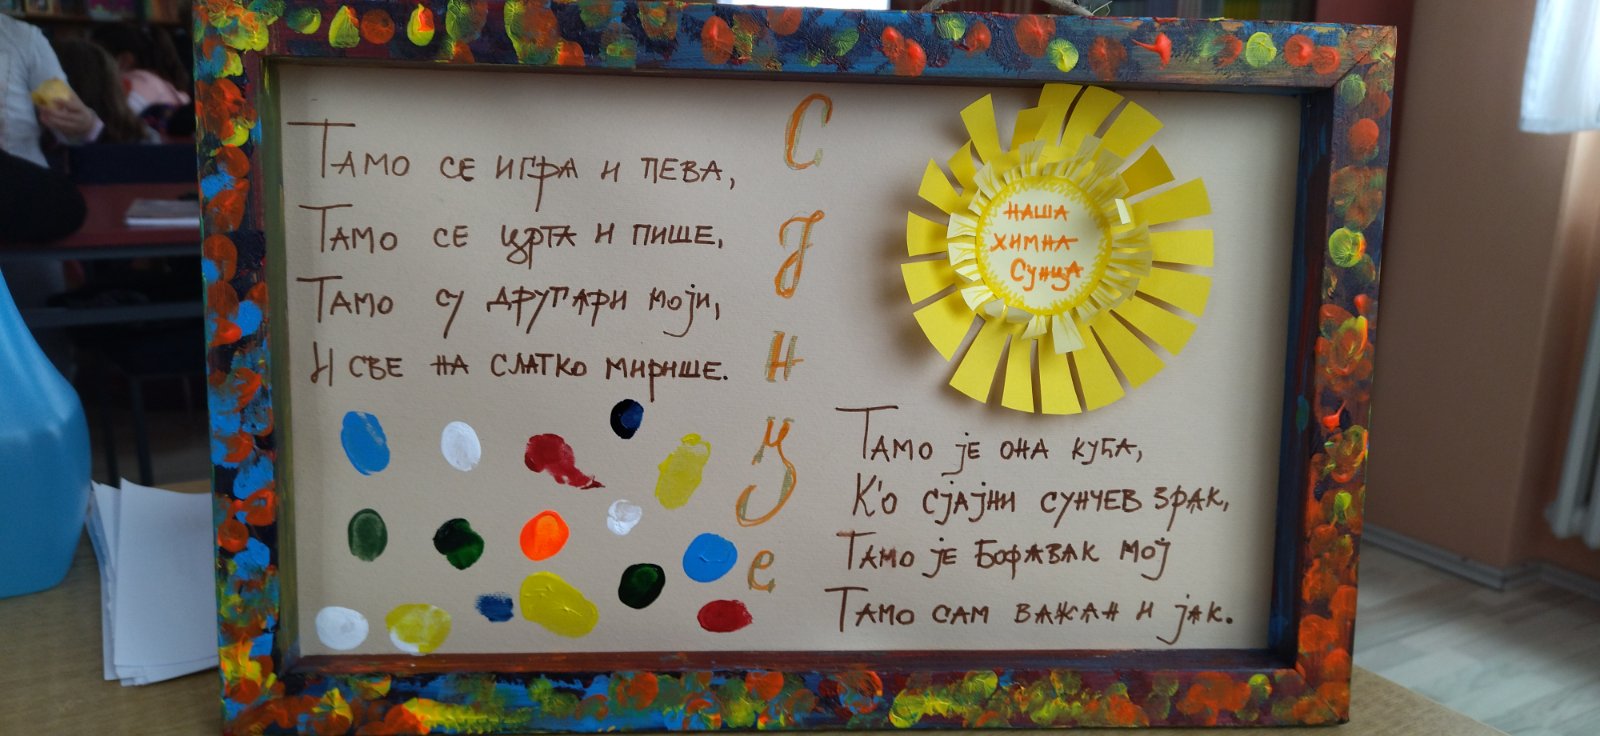 Тамо се игра и пева,
Тамо се црта и пише,
Тамо су другари моји,
И све на слатко мирише.
Сунце
наша
химна
Сунца
Тамо је она кућа,
К'о сјајни сунчев зрак,
Тамо је Боравак мој
Тамо сам важан и јак.